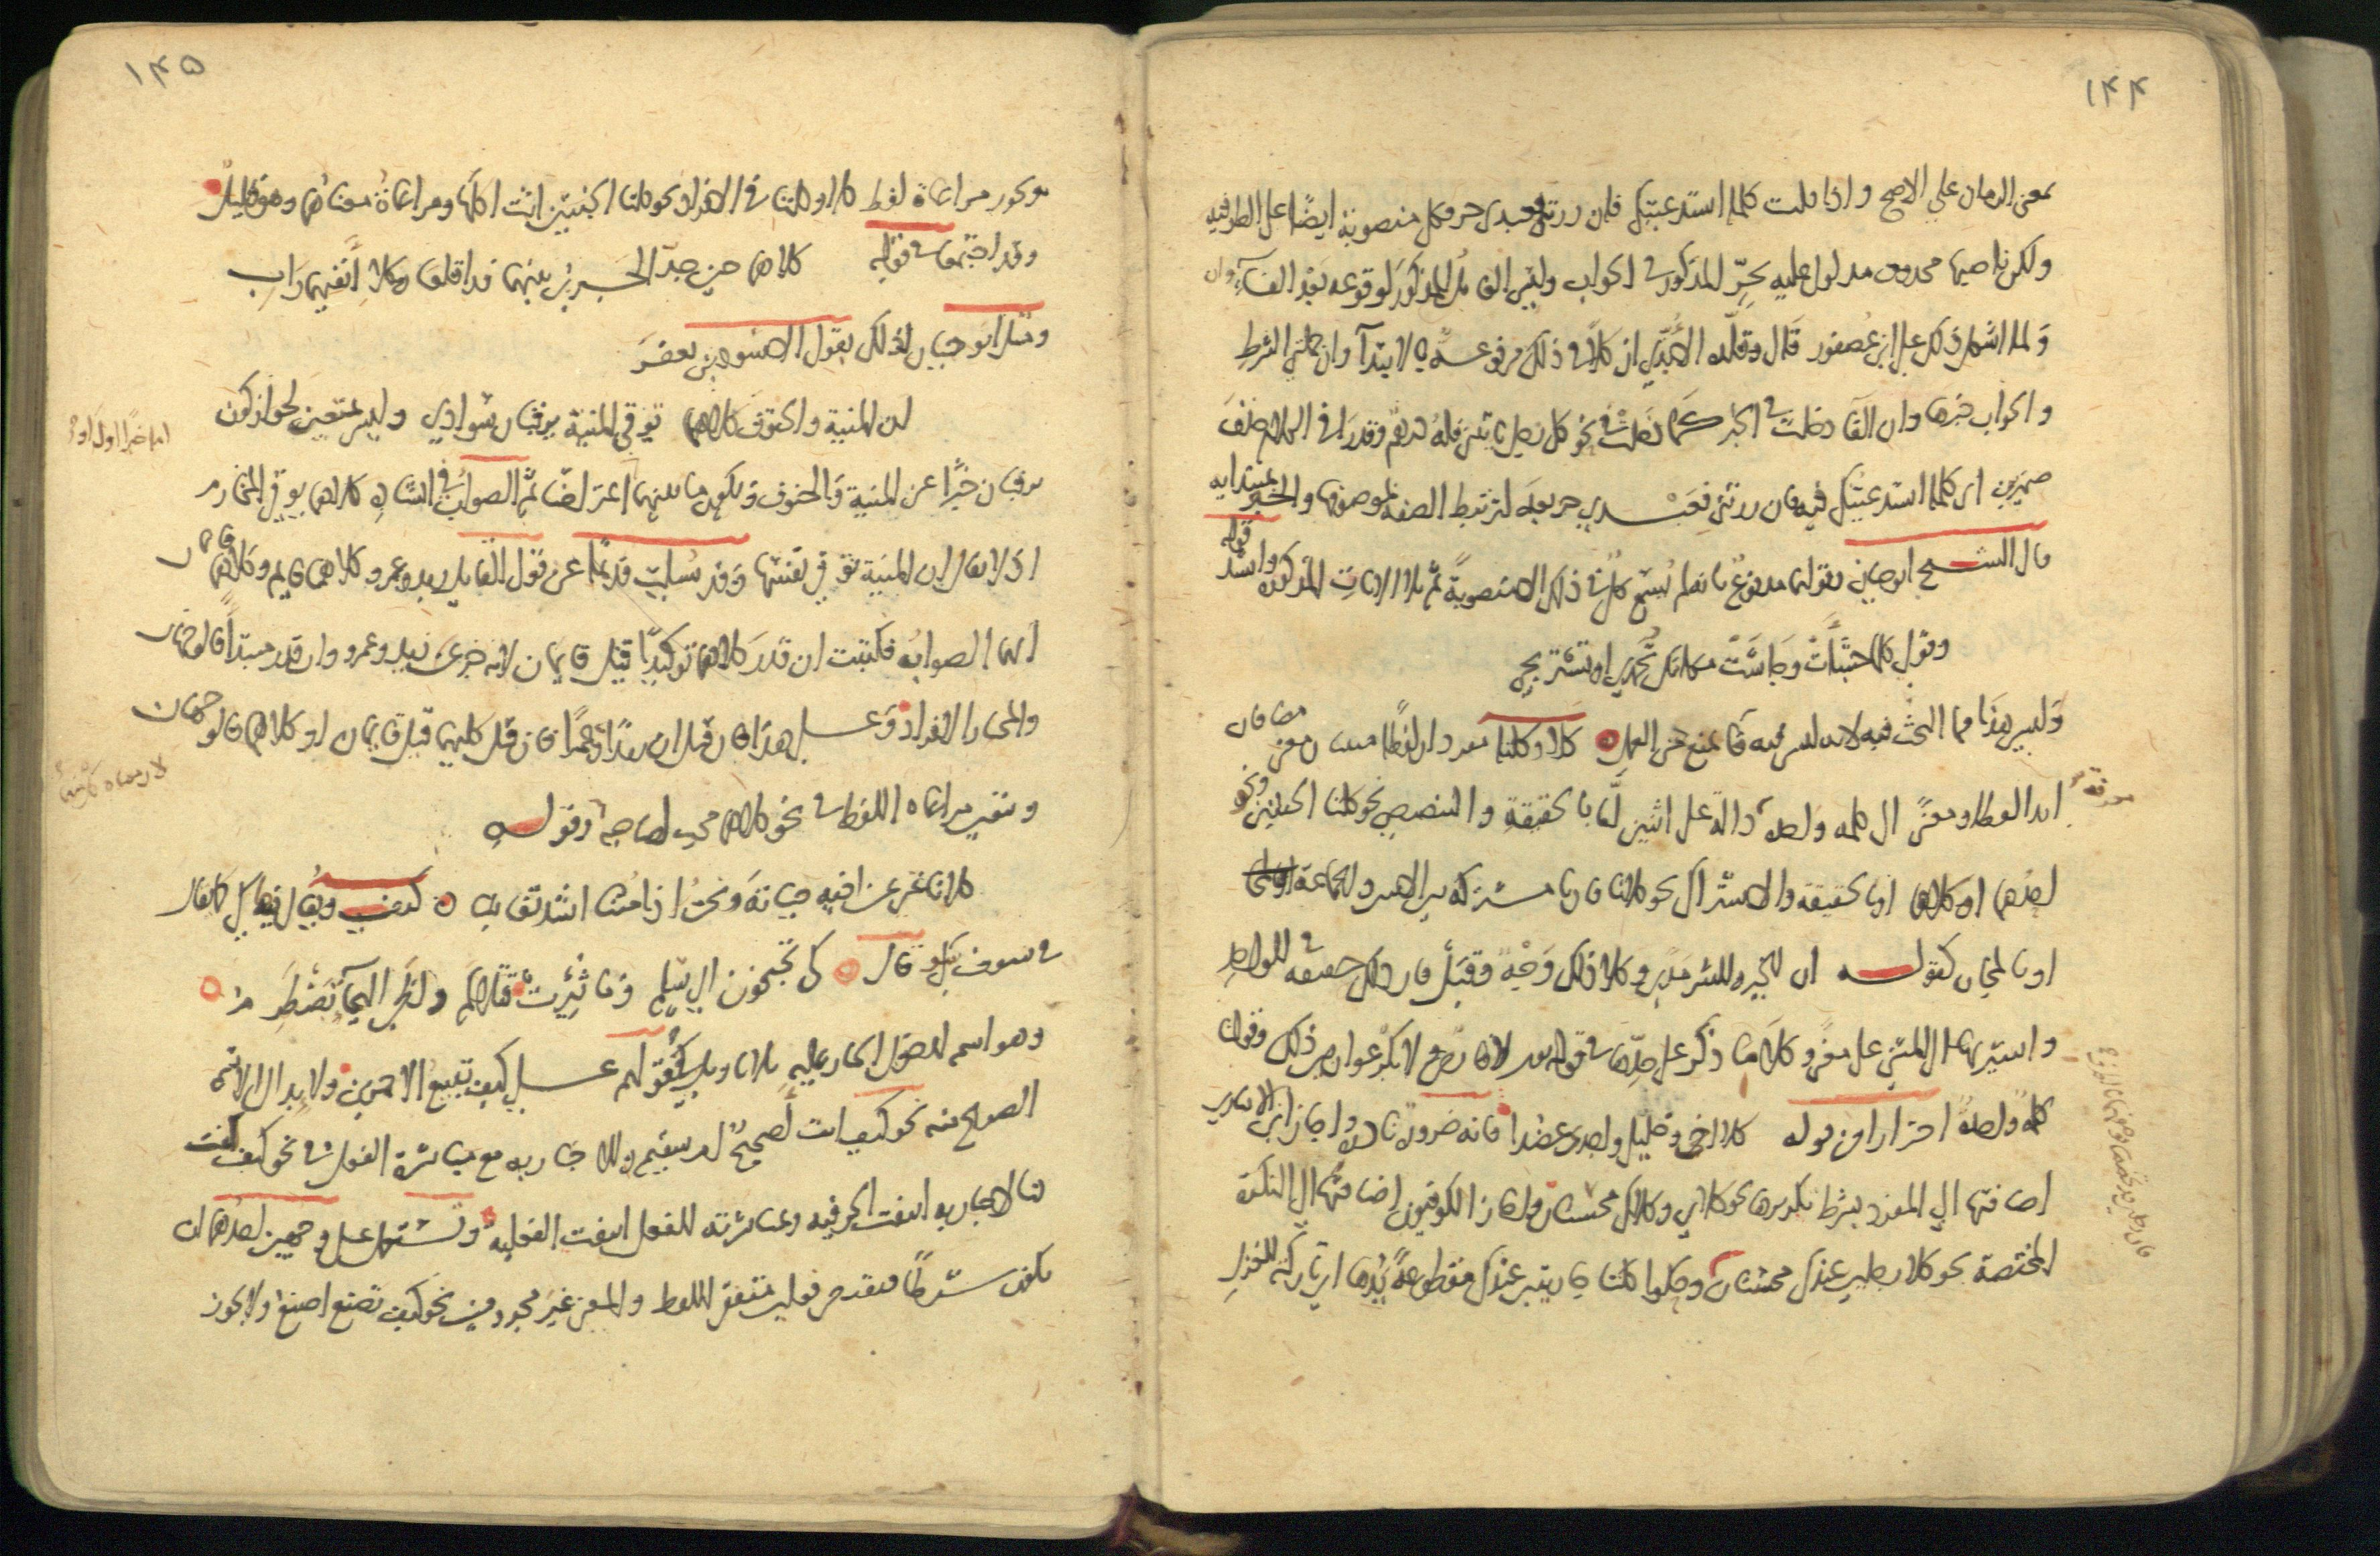 ١٤٤
بمعنى الزمان على الاصح واذا قلت كلما استدعيتك فان زرتني فعبدي حر فكل منصوبة ايضًا على الظرفيه
ولكن ناصبها محذوف مدلول عليه بحرّ المذكور في الجواب وليس العامل المذكور لوقوعه بَعْدَ الفآءِ وان
وَلما اشكل ذلك على ابن عُصفور قال وقلّده الأُبَّدي ان كلاً في ذلك مرفوعة بالابتدآ وان جملتي الشرط
والجواب خبرها وان الفآ دخلت في الخبر كما دخلت في نحو كل رجل ياتيني فله درهم وقدرا في الكلام حذف
ضميرين اي كلما استدعيتك فيه فان زرتني فعبدي حر بعده لترتبط الصفة بموصوفها والخبر بمبتدايه
قال الشيخ ابو حيان وقولهما مدفوع بانه لم يُسمع كل في ذلك الا منصوبةً ثم تلا الايات المذكورة وانشد قوله
وقولي كلما جشَأَتْ وجَاشَتْ مكانك تُحمدي او تستريحي
وَليس هذا مما البحث فيه لانه ليس فيه ما يمنع من العمل ۝ كلا وكلتا مفردان لفظًا مثنيان معنى مضافان
ابدا لفظا ومعنىً الى كلمة واحدة معرفة دالة على اثنين إمّا بالحقيقة والتنصيص نحو كلتا الجنتين ونحو
احدُهما او كلاهما او بالحقيقة والاشتراك نحو كلانا فان نا مشتركة بين الاثنين والجماعة
او بالمجاز كقوله ان للخير وللشر مَدًى وكلا ذلك وَجْهٌ وقَبَلْ فان ذلك حقيقة في الواحد
واشير بها الى المثنى على معنى وكلا ما ذكر على حدّها في قوله تعالى لا فارض ولا بكر عوان بين ذلك وقولنا
كلمة واحدة احترازا من قوله كلا اخي وخليلي واجدي عضدا فانه ضرورة نادرة واجاز ابن الانباري
اضافتها الى المفرد بشرط تكريرها نحو كلاي وكلاك محسنان واجاز الكوفيون اضافتها الى النكرة
المختصة نحو كلا رجلين عندك محسنان وحكوا كلتا جاريتين عندك مقطوعةٌ يَدُها اي تاركة للغزل
١٤٥
ويجوز مراعاة لفظ كلا وكلتا في الافراد نحو كلتا الجنتين اتت اكلها ومراعاة معناهما وهو قليلٌ
وقد اجتمعا في قوله كلاهما حين جدّ الجَري بينهما قد اقلعا وكلا أنفيهما رَابِ
ومثل ابو حيان لذلك بقول الاسود بن يعفرَ
ان المنية والحتوف كلاهما توفي المنية يرقبان سَوادي وليس بمتعين لجواز كون
يرقبان خبرًا عن المنية وَالحتوف ويكون ما بينهما اعتراضًا ثمّ الصواب في انشادِه كلاهما يوفي المخارم
اذ لا يقال ان المنية توفي نفسها وقد سُئلت قديمًا عن قول القائل زيد وعمرو كلاهما قايم وكلاهما قايمان
ايهما الصوابُ فكتبت ان قدرَ كلاهما توكيدًا قيل قايمان لانه خبر عن زيد وعمرو وان قدر مبتدأ فالوجهان
والمختار الافراد وَعلى هذا فان قيل ان زيدًا وعَمرًا فان قيل كليهما قيل قايمان او كلاهما فالوجهان
ويتعين مراعاة اللفظ في نحو كلاهما محب لصاحبه وقوله
كلانا غني عن اخيه حياتهُ ونحن اذا متنا اشد تغانيا ۝ كيف ويقال فيها كي كما يقال
في سوف سَو قال كي تجنحون الى سِلمٍ وما ثُئِرت قتلاكم ولظى الهيجآءِ تضطَرِمُ
وهو اسم لدخول الجار عليه بلا تاويل في قولهم على كيف تبيع الاحمرين ولابدال الاسم
الصريح منه نحو كيف انت أصحيحٌ ام سقيم وللاخبار به مع مباشرة الفعل في نحو كيف كنت
فبالاخبار به انتفت الحرفيه وبمباشرته للفعل انتفت الفعلية وتستعمل على وجهين احدُهما ان
يكون شرطًا فيقتضي فعلين متفقي اللفظ والمعنى غير مجزومين نحو كيف تصنع اصنعُ ولا يجوز